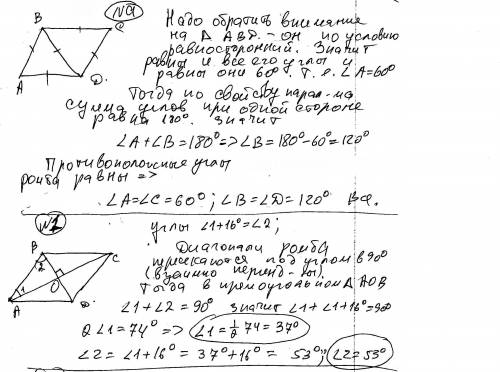 №9
Надо обратить внимание
на Δ АВД. - он по условию
равносторонний. Значит
равны и все его углы и
равны они 60°. Т. е. ∠A=60°
Тогда по свойству парал-ма
сумма углов при одной стороне
равна 180°. Значит
∠A+∠B=180°=>∠B=180°-60°=120°
Противоположные углы
ромба равны =>
∠A=∠C=60°; ∠B=∠D=120° Всё.
B C
A D
№1
углы ∠1+16°=∠2;
Диагонали ромба
пересекаются под углом в 90°
(взаимно перпенд-ны).
Тогда в прямоугольном Δ АОВ
∠1+∠2=90° значит ∠1+∠1+16°=90
2∠1=74° => ∠1=½ 74=37°
∠2=∠1+16°=37°+16°= 53°; ∠2=53°
B C
2
O
1
A D